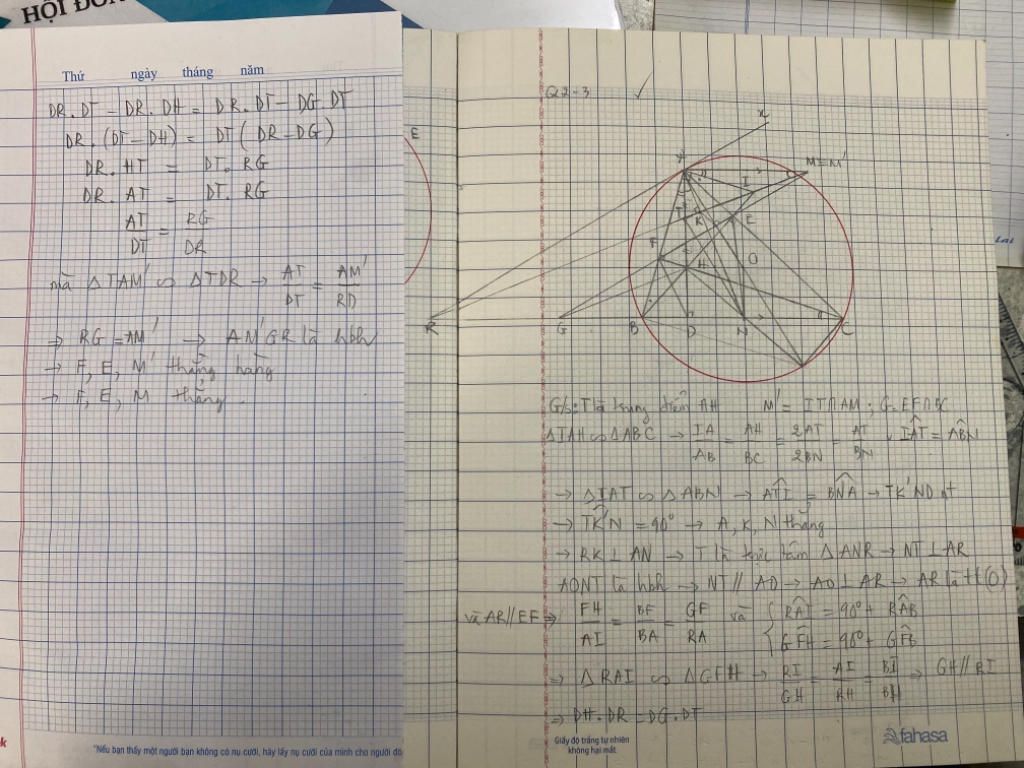 HỘI ĐỒN
Thứ ngày tháng năm
DR.DT - DR.DH = DR.DT - DG.DT
DR.(DT-DH) = DT(DR-DG)
DR.HT = DT.RG
DR.AT = DT.RG
AT/DT = RG/DR
mà △TAM' ∽ △TDR → AT/DT = AM'/RD
→ RG = AM' → AM'GR là hbh
→ F, E, M' thẳng hàng
→ F, E, M thẳng.
"Nếu bạn thấy một người bạn không có nụ cười, hãy lấy nụ cười của mình cho người đó
E
Q2-3
x
A
M≡M'
I
T
K
E
F
H
O
R
G
B
D
N
C
G/s: T là trung điểm AH M' = IT∩AM; G = EF∩BC
△IAH ∽ △ABC → IA/AB = AH/BC = 2AT/2BN = AT/BN, IAT = ABN
→ △IAT ∽ △ABN → ATI = BNA → TK'ND nt
→ TK'N = 90° → A, K, N thẳng
→ RK ⊥ AN → T là trực tâm △ANR → NT ⊥ AR
AONT là hbh → NT // AO → AO ⊥ AR → AR là tt (O)
và AR // EF ⇒ FH/AI = BF/BA = GF/RA và { RAI = 90° + RAB
GFH = 90° + GFB
⇒ △RAI ∽ △GFH → RI/GH = AI/FH = BI/BH ⇒ GH // RI
⇒ DH.DR = DG.DT
Giấy độ trắng tự nhiên
không hại mắt.
fahasa